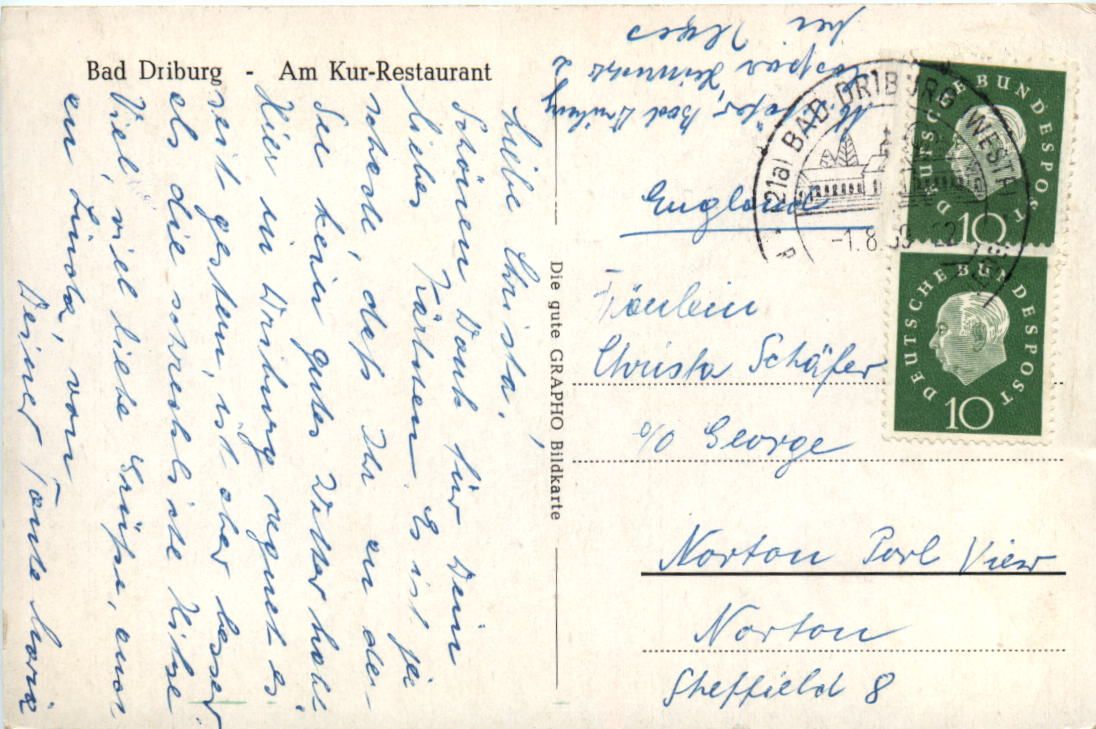 Bad Driburg - Am Kur-Restaurant
Liebe Christa,
Schönen Dank für Dein
liebes Kärtchen. Es ist ja
schade, daß Ihr an der
See kein gutes Wetter habt
Hier in Driburg regnet es
seit gestern, ist aber besser
als die schreckliche Hitze
Viel, viel liebe Grüße, auch
an Linda, von
Deiner Tante Maria
Die gute GRAPHO Bildkarte
Bad Driburg
bei
England
(21a) BAD DRIBURG WESTF
-1.8.59-22
DEUTSCHE BUNDESPOST
10
DEUTSCHE BUNDESPOST
10
Fräulein
Christa Schäfer
c/o George
Norton Parl View
Norton
Sheffield 8